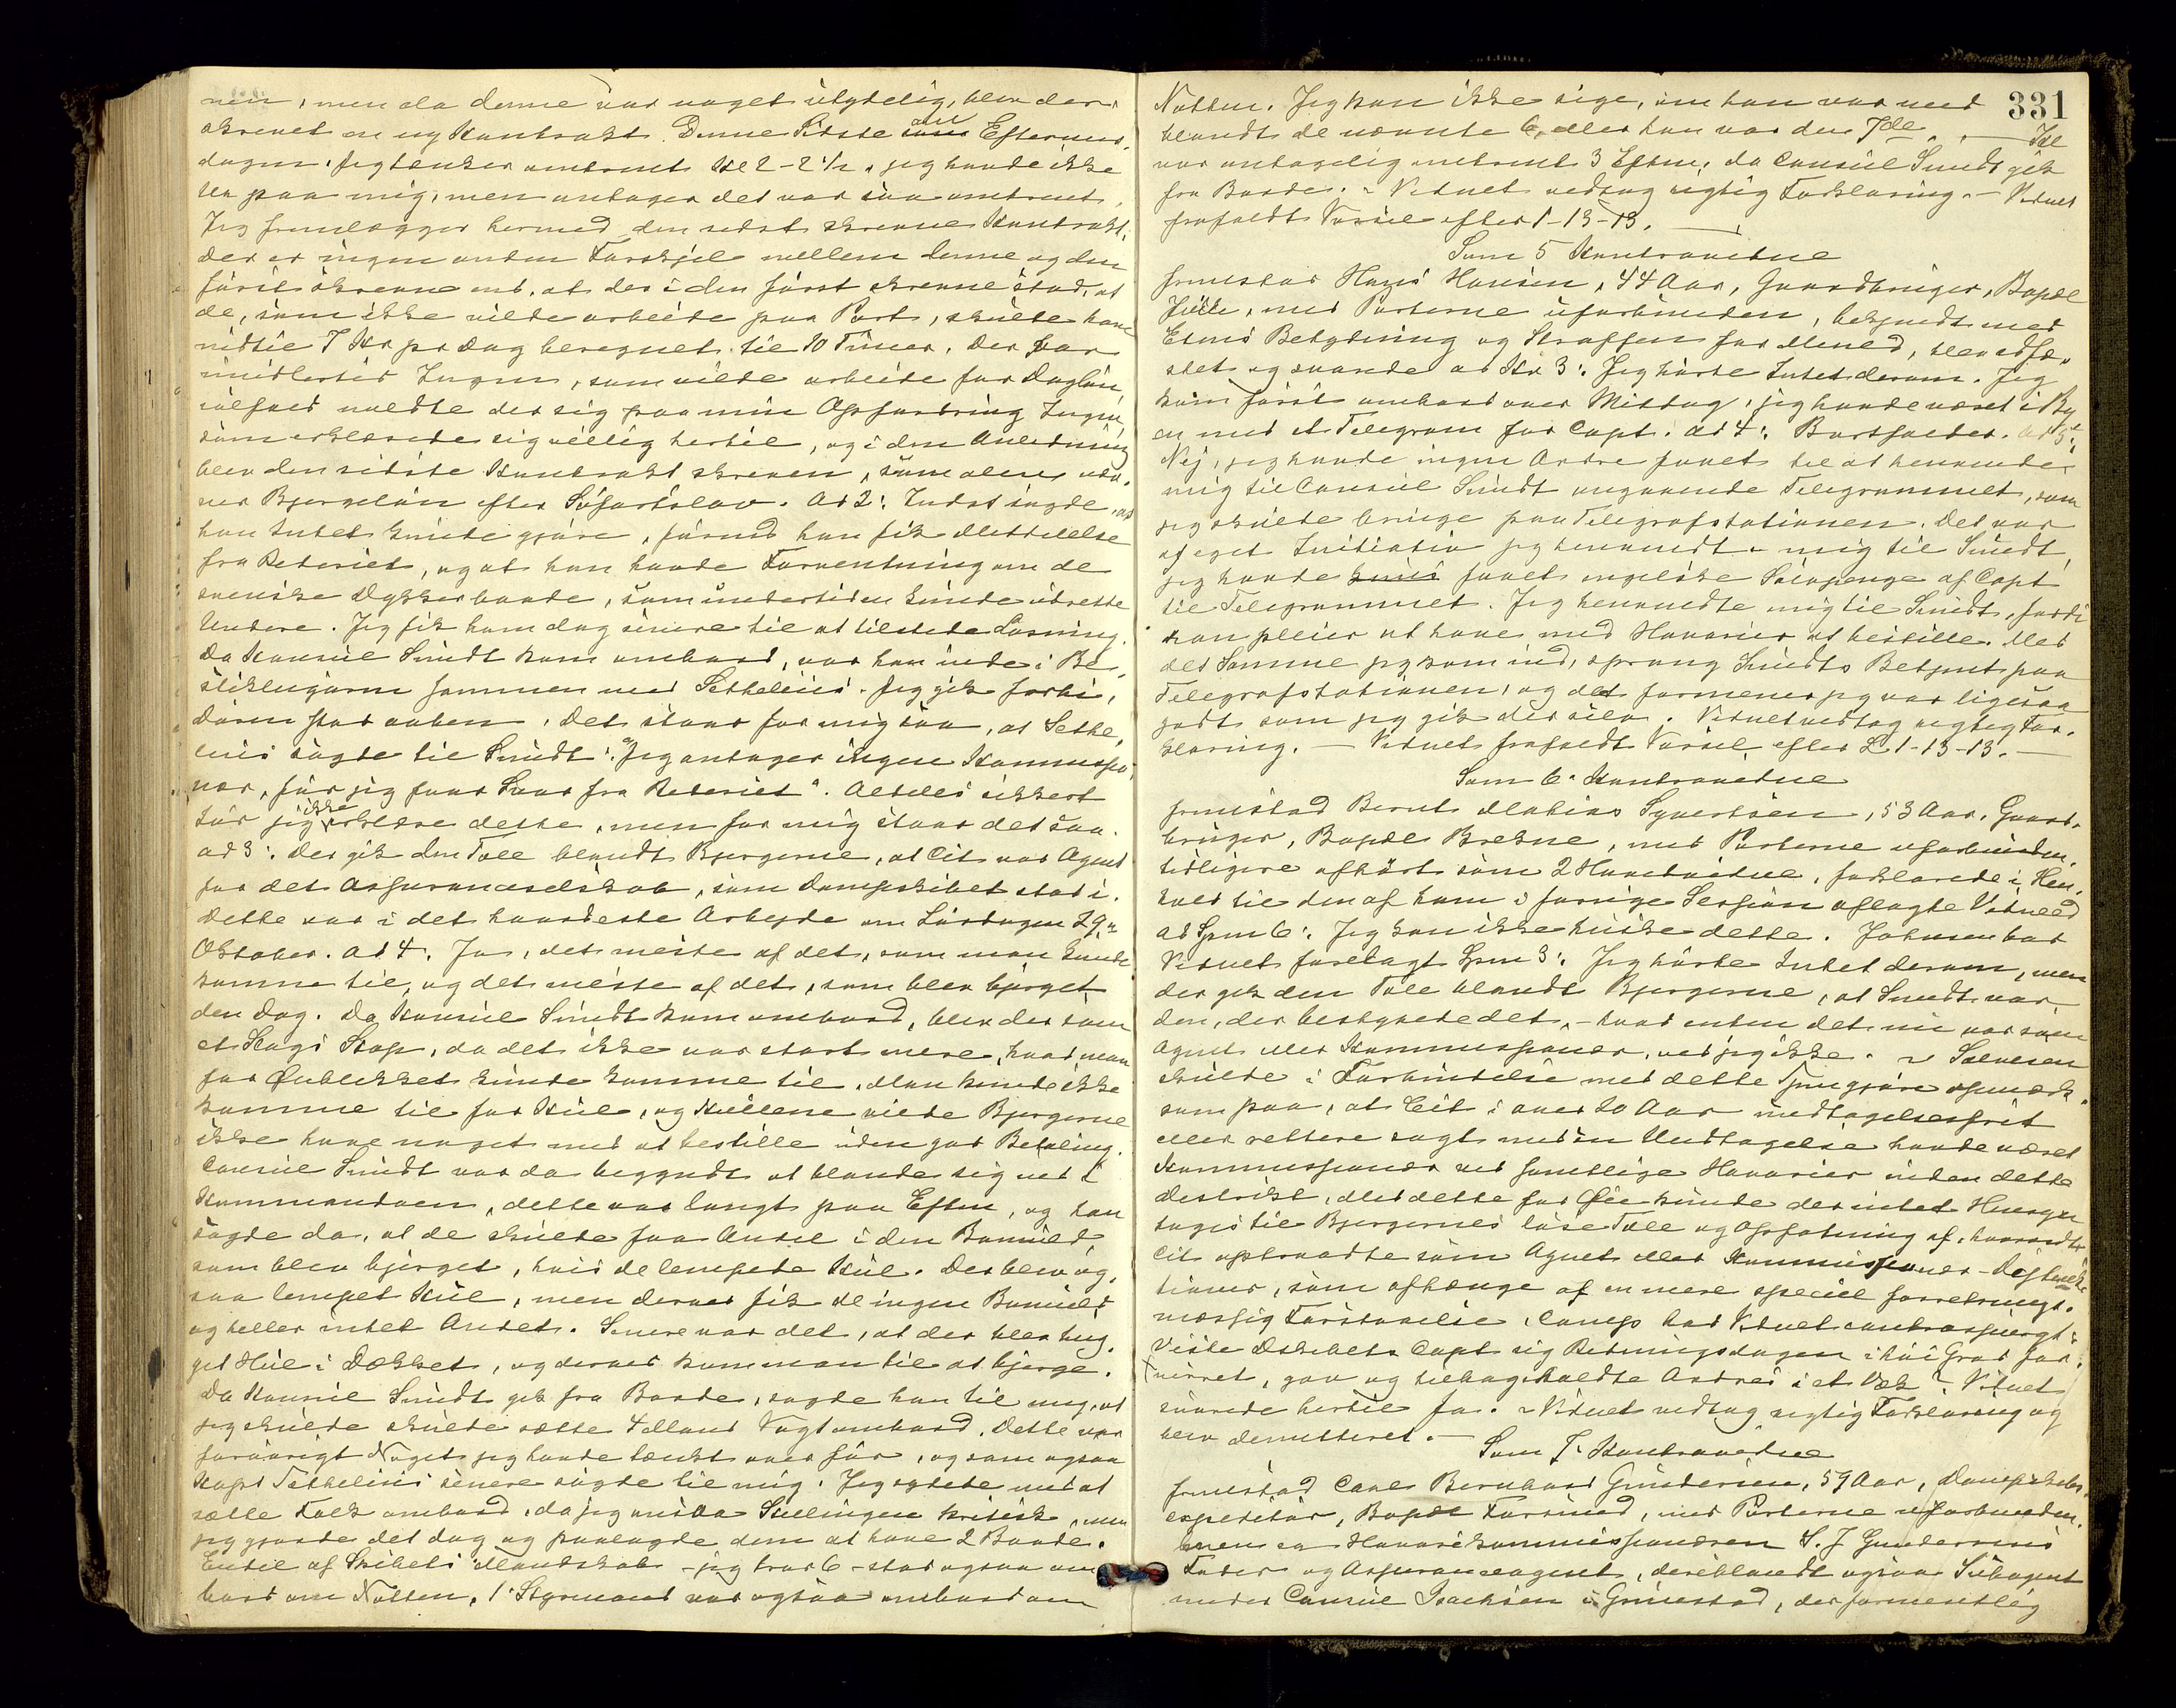 nen, men da denne var noget utydelig, blev der
skrevet en ny Kontrakt. Denne Sidste om Eftermid-
dagen, jeg tænker omtrent Kl 2-2½, jeg havde ikke
Ur paa mig, men antager det var saa omtrent.
Jeg fremlægger hermed den sidst skrevne Kontrakt.
Der er ingen anden Forskjel mellem denne og den
først skrevne end, at der i den først skrevne stod, at
de, som ikke vilde arbeide paa Part, skulde have
indtil 7 Kr pr Dag beregnet til 10 Timer. Der var
imidlertid Ingen, som vilde arbeide for Dagløn,
ialfald meldte der sig paa min Opfordring Ingen,
som erklærede sig villig hertil, og i den Anledning
blev den sidste Kontrakt skreven, som alene
ner Bjergeløn efter Søfartslov. Ad 2: Smidt sagde, at
han Intet kunde gjøre, førend han fik Meddelelse
fra Rederiet, og at han havde Forventning om de
svenske Dykkerbaade, som undertiden kunde udrette
Undere. Jeg fik ham dog senere til at tilstede Losning.
Da Konsul Smidt kom ombord, var han inde i Be-
stiklugaren sammen med Sethelius. Jeg gik forbi,
Døren stod aaben. Det staar for mig saa, at Sethe-
lius sagde til Smidt: "Jeg antager ingen Kommissio-
nær, før jeg faar Svar fra Rederiet". Aldeles sikkert
tør jeg ikke erklære dette, men for mig staar det saa.
ad 3: Der gik den Tale blandt Bjergerne, at Cit. var Agent
for det Assuranceselskab, som Dampskibet stod i.
Dette var i det haardeste Arbejde om Lørdagen 29de
Oktober. Ad 4. Ja, det meste af det, som man kunde
komme til, og det meste af det, som blev bjerget
den Dag. Da Konsul Smidt kom ombord, blev der som
et Slags Stop, da det ikke var stort mere, hvad man
for Øieblikket kunde komme til. Man kunde ikke
komme til for Kul, og Kullene vilde Bjergerne
ikke have noget med at bestille uden god Betaling.
Consul Smidt var da begyndt at blande sig ind i
Kommandoen, dette var langt paa Eftm, og han
sagde da, at de skulde faa Andel i den Bomuld,
som blev bjerget, hvis de lempede Kul. Der blev og-
saa lempet Kul, men derved fik de ingen Bomuld
og heller intet Andet. Senere var det, at der blev hug-
get Hul i Dækket, og derved kom man til at bjerge.
Da Konsul Smidt gik fra Borde, sagde han til mig, at
jeg skulde skulde sætte 4 Mand Vagt ombord. Dette var
forøvrigt Noget jeg havde tænkt over før, og som ogsaa
Kapt Sethelius senere sagde til mig. Jeg nølede med at
sætte Folk ombord, da jeg ansaa Stillingen kritisk, men
jeg gjorde det dog og paalagde dem at have 2 Baade.
Endel af Skibets Mandskab - jeg tror 6 - stod ogsaa om
bord om Natten. 1ste Styrmand var ogsaa ombord om
331
Natten. Jeg kan ikke sige, om han var med
blandt de nævnte 6, eller han var den 7de. — Kl
var antagelig omtrent 3 Eftm, da Consul Smidt gik
fra Borde. - Vidnet vedtog rigtig Forklaring. — Vidnet
frafaldt Varsel efter 1-13-13. —
Som 5 Kontravidne
fremstod Hans Hansen, 44 Aar, Gaardbruger, Bopæl
, med Parterne uforbunden, bekjendt med
Edens Betydning og Straffen for Mened, blev edfæ-
stet og svarede ad Kv 3: Jeg hørte Intet derom. Jeg
kom først ombord over Middag, jeg havde været i By
en med et Telegram for Capt. Ad 4: Bortfalder. Ad 5:
Nej, jeg havde ingen Ordre faaet til at henvende
mig til Consul Smidt angaaende Telegrammet, som
jeg skulde bringe paa Telegrafstationen. Det var
af eget Initiativ jeg henvendte mig til Smidt,
jeg havde faaet engelske Sølvpenge af Capt
til Telegrammet. Jeg henvendte mig til Smidt, fordi
han pleier at have med Havarier at bestille. Med
det Samme jeg kom ind, sprang Smidts Betjent paa
Telegrafstationen, og det formener jeg var ligesaa
godt som jeg gik der selv. Vidnet vedtog rigtig For-
klaring. — Vidnet frafaldt Varsel efter L. 1-13-13. —
Som 6. Kontravidne
fremstod Bernt Mathias Syvertsen, 53 Aar, Gaard-
bruger, Bopæl Brekne, med Parterne uforbunden,
tidligere afhørt som 2 Hovedvidne, forklarede i Hen-
hold til den af ham i forrige Session aflagte Vidneed
ad Spm 6: Jeg kan ikke huske dette. Johnsen bad
Vidnet forelagt Spm 3: Jeg hørte Intet derom, men
der gik den Tale blandt Bjergerne, at Smidt var
den, der bestyrede det, - hvad enten det nu var som
Agent eller Kommissionær, ved jeg ikke. - Salvesen
skulde i Forbindelse med dette Spm gjøre opmærk-
som paa, at Cit i over 20 Aar undtagelsesfrit
eller rettere sagt med en Undtagelse havde været
Kommissionær ved samtlige Havarier inden dette
Distrikt, med dette for Øie kunde der intet Hensyn
tages til Bjergernes løse Tale og Opfatning af, hvorvidt
Cit optraadte som Agent eller Kommissionær - Distink-
tioner, som afhænge af en mere speciel forretnings-
mæssig Forstaaelse. Comp. bad Vidnet contraspurgt:
Viste Dskibets Capt sig Redningsdagen i høi Grad for-
virret, gav og tilbagekaldte Ordres i et Væk? Vidnet
svarede hertil Ja. - Vidnet vedtog rigtig Forklaring og
blev demitteret. —
Som 7. Kontravidne
fremstod Carl Bernhard Gundersen, 59 Aar, Dampskibs-
expeditør, Bopæl Farsund, med Parterne uforbunden,
men er Havarikommissionæren S. J Gundersens
Fader og Assuranceagent, deriblandt ogsaa Subagent
under Consul Isachsen i Grimstad, der formentlig